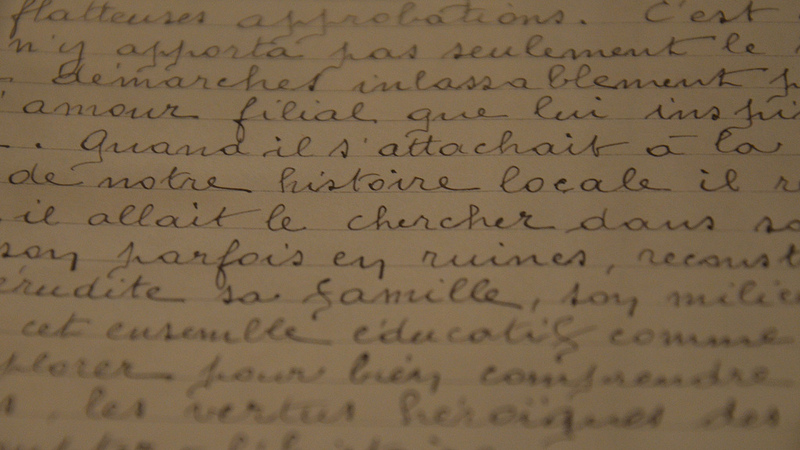 flatteuses approbations. C'est
n'y apporta pas seulement le
démarches inlassablement
'amour filial que lui inspi
. Quand il s'attachait à la
de notre histoire locale il
il allait le chercher dans
son parfois en ruines, reconst
érudite sa famille, son milie
cet ensemble éducatif comme
plorer pour bien comprendre
les vertus héroïques des